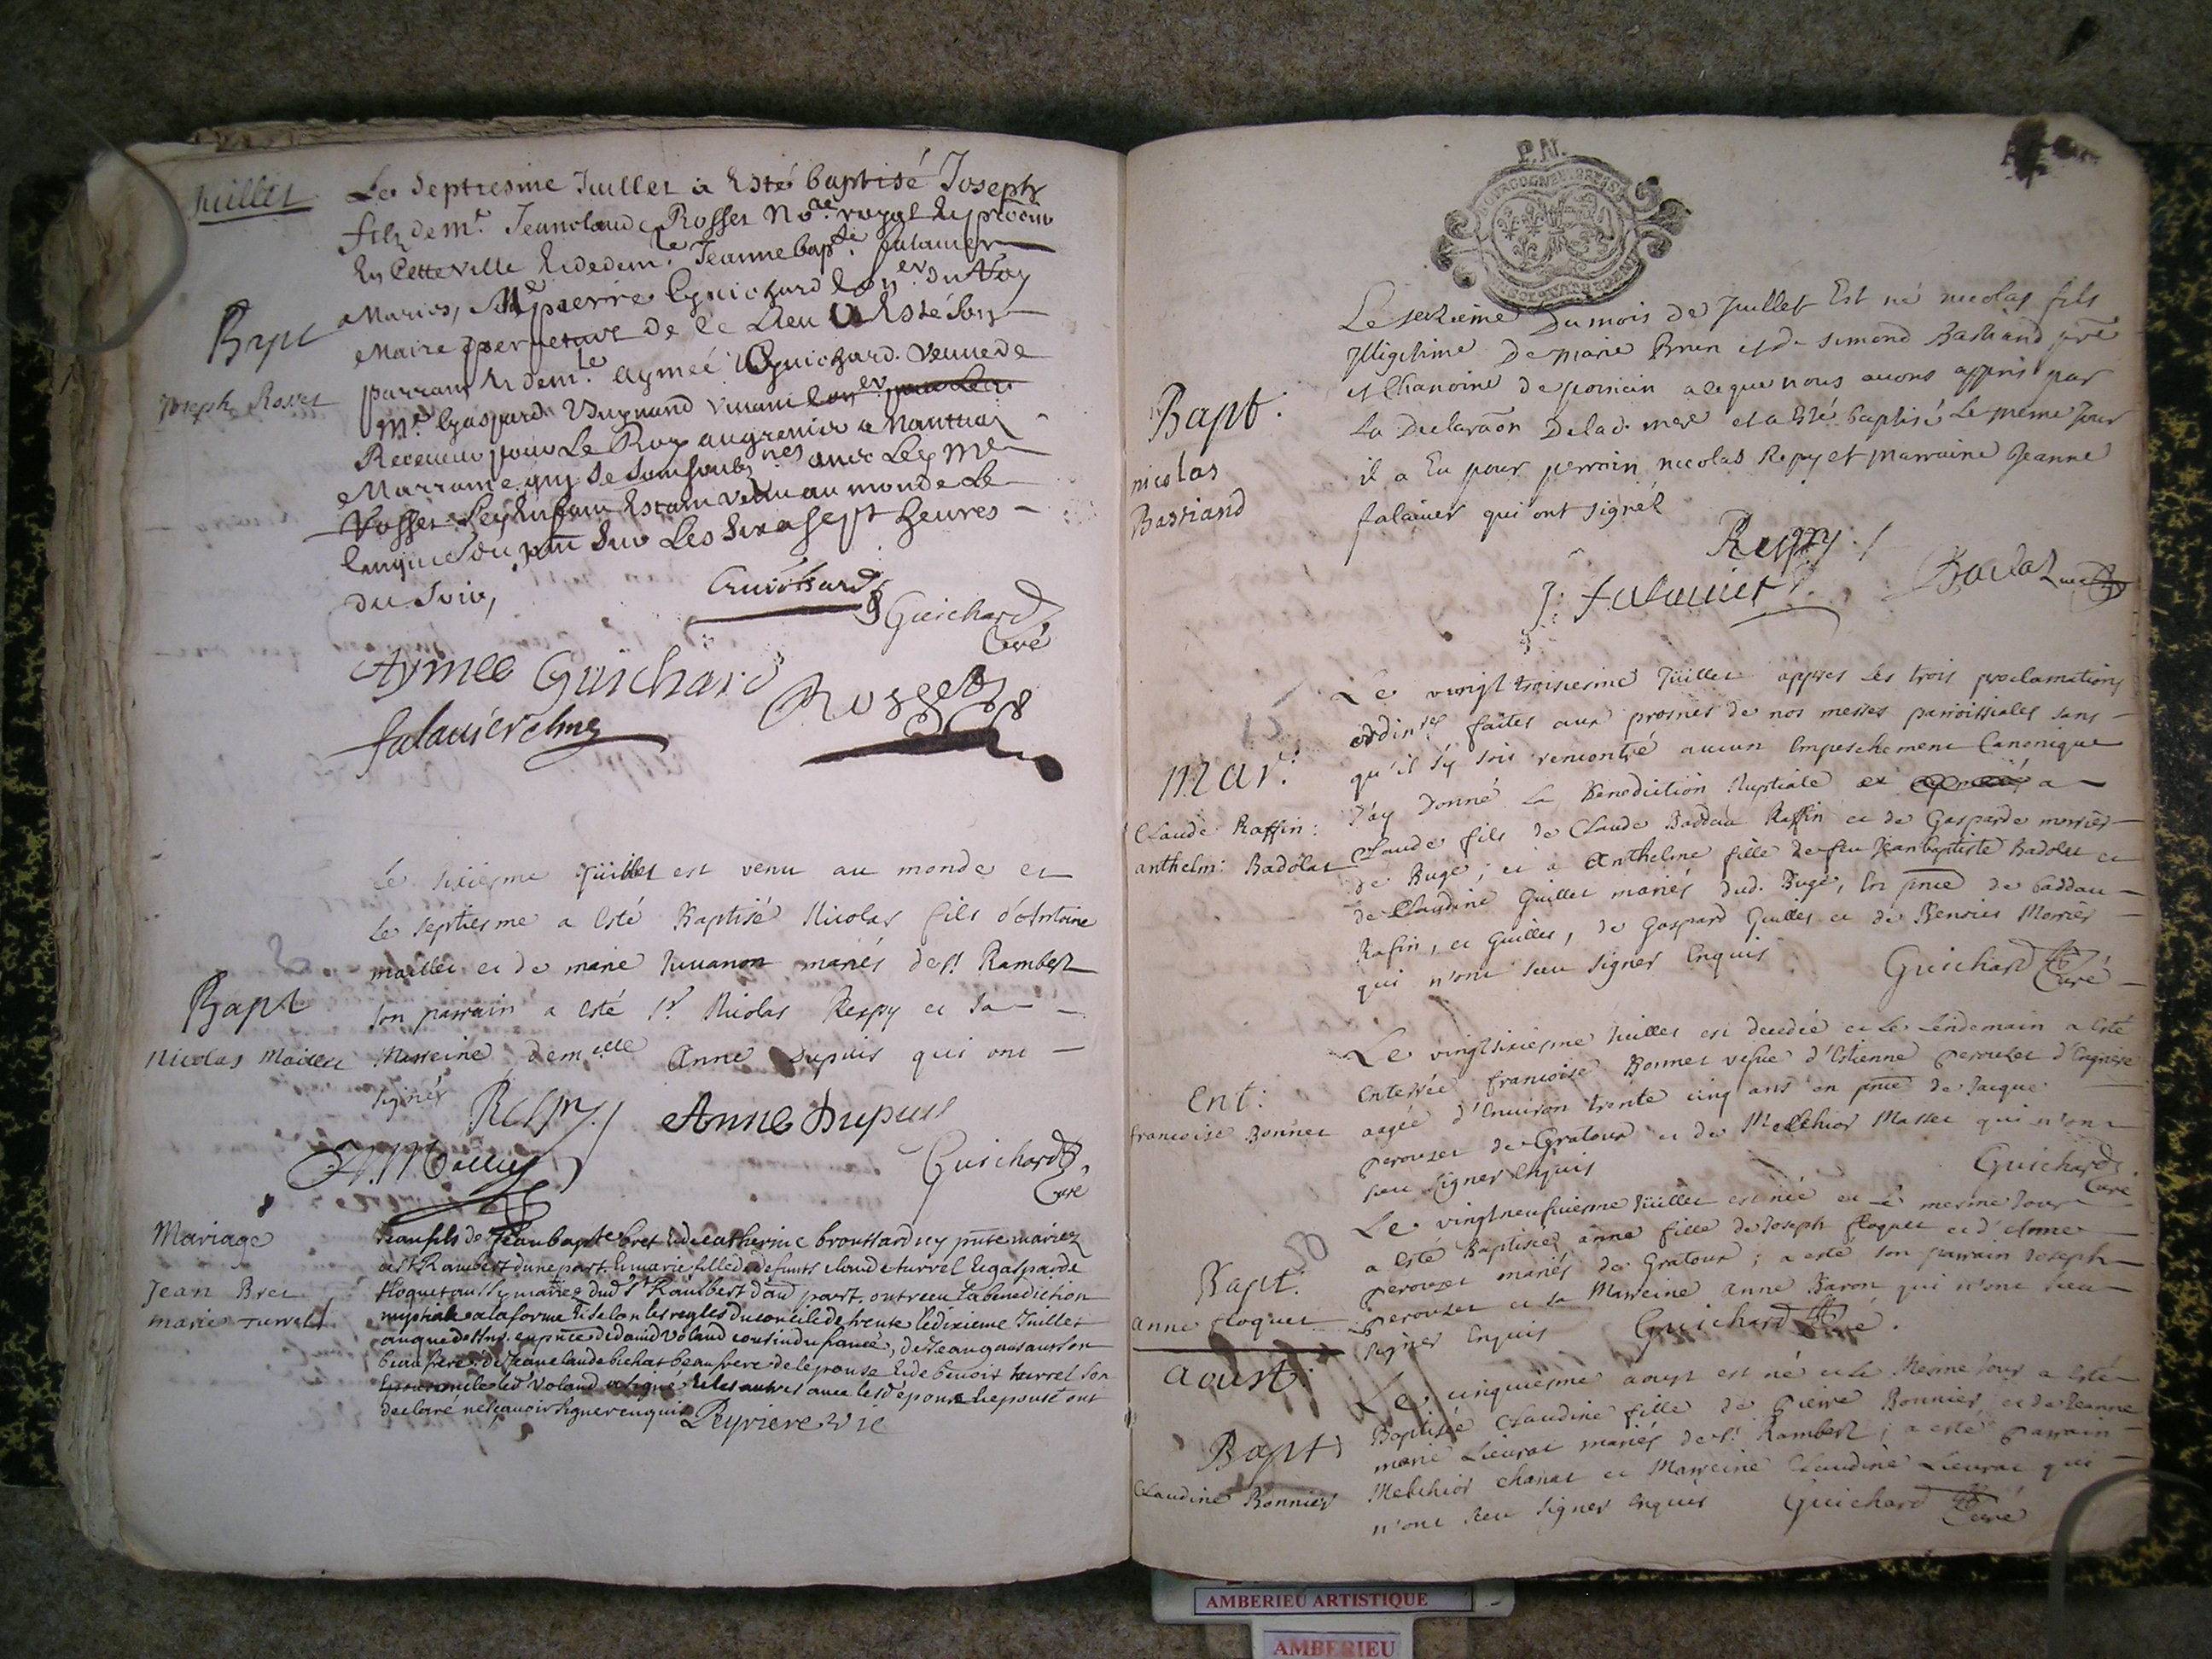 Juillet
Le septiesme Juillet a Esté baptisé Joseph
filz de mr. Jeanclaude Rosset nore. royal
En Cette ville Et de demlle. Jeanne bapte. falavier
Mariés, Mre pierre Guichard Coner. du Roy
Maire perpetuel de ce Lieu a Esté Son
Bapt
parrain Et demlle. Aymeé Guichard. veuve de
Joseph Rosset
Mre. Gaspard
Receveur pour Le Roy au grenier a Nantua
Marraine qui se sont soubsnés avec Ley Mre
Rosset L'enfant Estant venu au monde Le
du pnt Sur Les six a sept heures
du Soir,
Guichard
Guichard
Curé
Aymee Guichard
Rosset
falavier
Le sixiesme Juillet est venu au monde et
Le septiesme a esté Baptisé Nicolas fils d'Antoine
maillet et de marie Juuanon mariés de St. Rambert
Bapt
son parrain a esté Sr. Nicolas Respy et sa
Nicolas Maillet
Marreine demoiselle Anne Dupuis qui ont
signés
Respy
Anne Dupuis
Guichard
Curé
Mariage
Jean Bret
marie Turrel
Jean fils de Jean bapte bret Et de catherine brouttard icy pnte mariez
de St Rambert d'une part. Et marie fille de defunts claude turrel Et gasparde
floquet aussy mariez dud St Rambert d'aud part. ont receu la benediction
nuptiale a la forme Et selon les regles du concile de trente le dixieme Juillet
en pnce de david Voland cousin du fiancé, de Jean son
beaufrere, de Jeanclaude bichat beaufrere de l'epouse Et de benoit turrel son
led Voland a signé Et les autres avec lesd epoux Et epouse ont
declaré ne scavoir signer enquis
Peyriere vic
P.N.
BOURGOGNE BRESSE
Le seizieme Du mois de Juillet Est né nicolas fils
Illigitime De marie Brun et de simond Bastiand pre
et Chanoine de a ce que nous avons appris par
La Declaraon De lad. mere et a Esté baptisé Le meme Jour
Bapt.
nicolas
Bastiand
il a Eu pour perrain nicolas Repy et marraine Jeanne
falavier qui ont signéz
Respy
J: falavier
Le vingt troisiesme Juillet appres les trois proclamations
ordinres faites aux prosnes de nos messes parroissiales sans
qu'il s'y soit rencontré aucun Empeschement Canonique
mar:
J'ay donné la Benediction Nuptiale a
Claude Raffin:
anthelm: Badolat
Claude fils de Claude Baddau Raffin et de Gasparde
de Buge; et a Anthelme fille de feu Jeanbaptiste Badolat et
de Claudine Guillet mariés dud. Buge, En pnce de Baddau
Rafin, et Guillet, de Gaspard Guillet et de Benoit
qui n'ont sceu signer Enquis
Guichard
Curé
Le vingtsixiesme Juillet est decedée et Le Lendemain a Esté
Enterrée francoise Bonnet vefue d'Estienne perouzet
Ent:
francoise Bonnet
aagée d'Environ trente cinq ans en pnce de Jacque
perouzet de Gratoux et de Melchior Masset qui n'ont
sceu signer Enquis
Guichard
Curé
Le vingtneufuiesme Juillet est née et Le mesme Jour
a Esté Baptisée anne fille de Joseph floquet et d'Anne
Bapt:
anne floquet
perouzet mariés de Gratoux; a esté son parrain Joseph
perouzet et sa Marreine anne Baron qui n'ont sceu
signer Enquis
Guichard Curé.
Aoust.
Le cinquiesme aoust est né et Le Mesme Jour a Esté
Baptisée Claudine fille de Pierre Bonnier et de Jeanne
Bapt
Claudine Bonnier
marie Lieurat mariés de St. Rambert; a esté parrain
Melchior chanat et Marreine Claudine Lieurat qui
n'ont sceu signer Enquis
Guichard Curé
AMBERIEU ARTISTIQUE
AMBERIEU